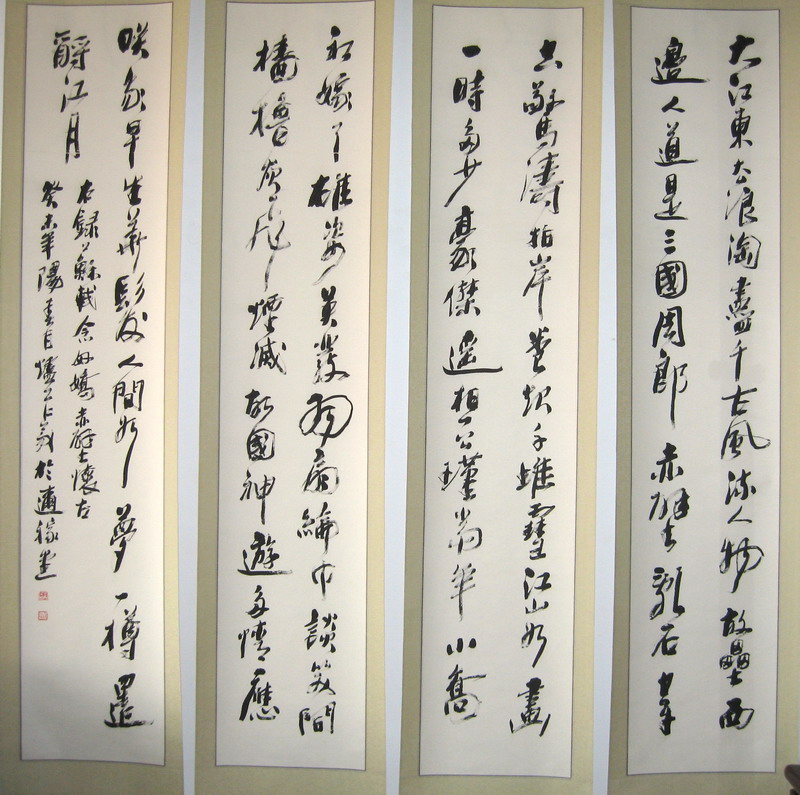 大江東去浪淘盡千古風流人物故壘西
邊人道是三國周郎赤壁亂石穿
空驚濤拍岸卷起千堆雪江山如畫
一時多少豪傑遙想公瑾當年小喬
初嫁了雄姿英發羽扇綸巾談笑間
檣櫓灰飛煙滅故國神遊多情應
笑我早生華髮人間如夢一樽還
酹江月
右録蘇軾念奴嬌赤壁懷古
癸未年陽春月於